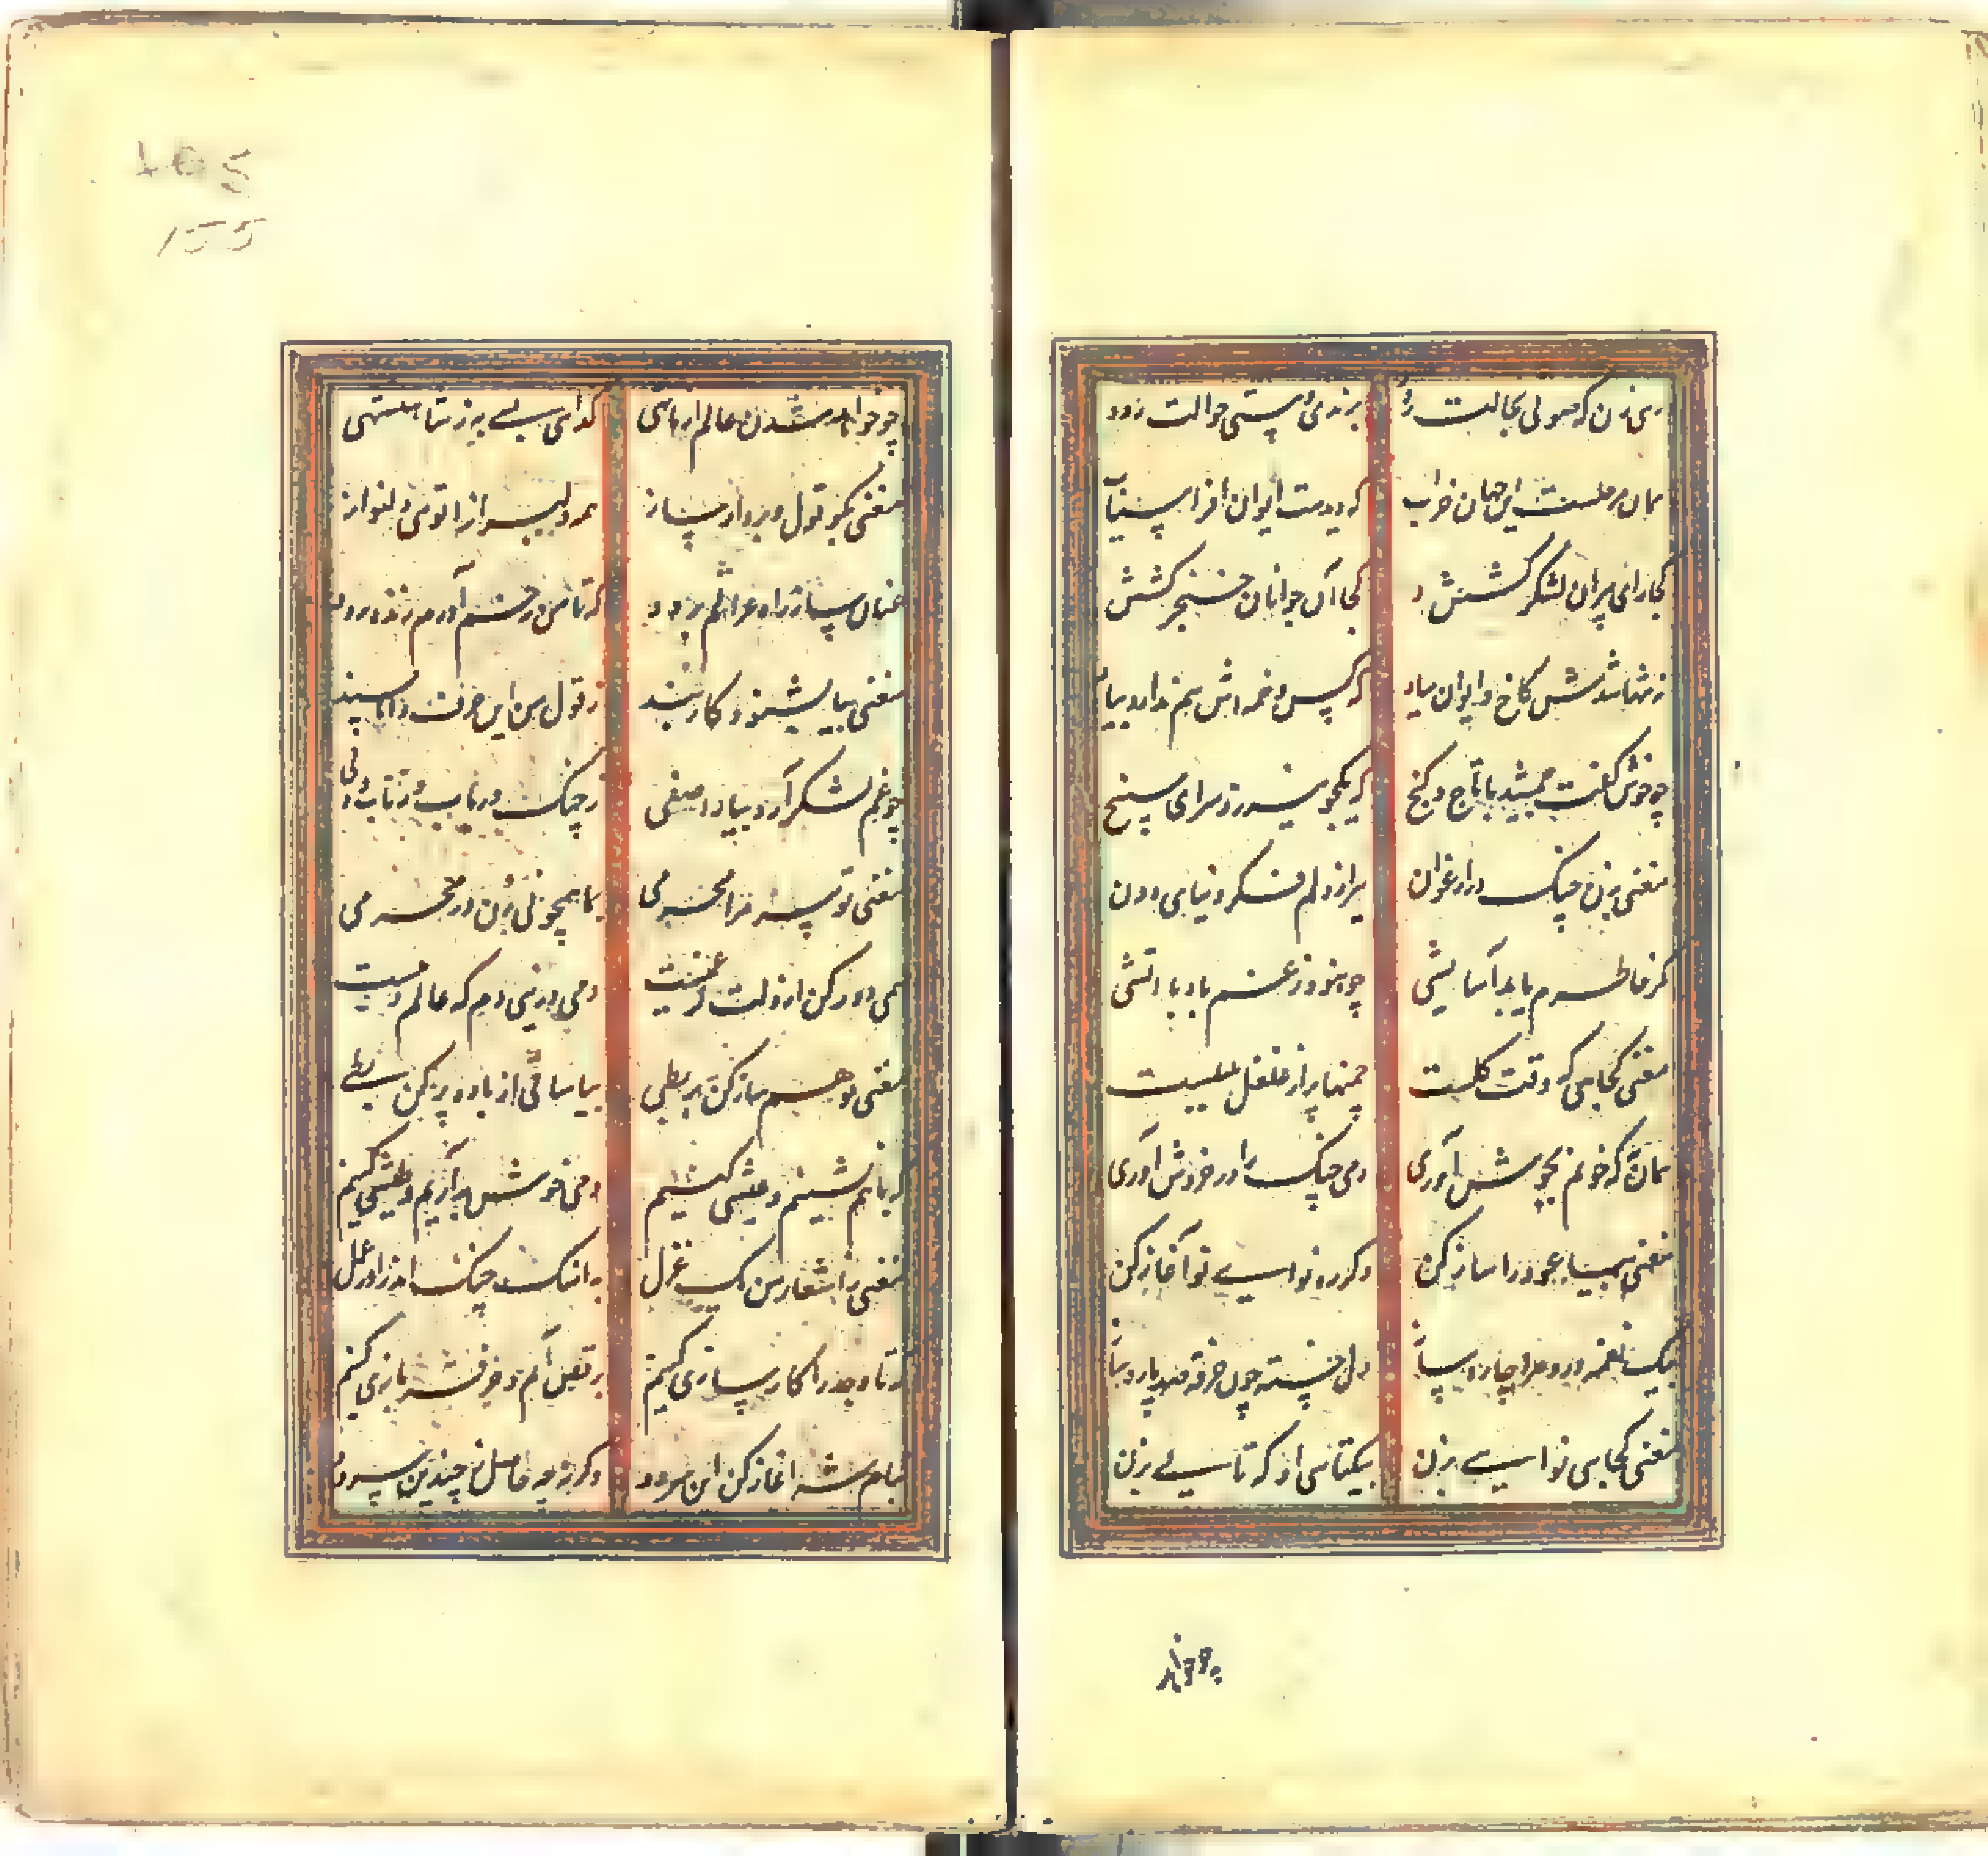 رهی زن که صوفی بحالت رود برندی و مستی حوالت رود
همان مرحلست این جهان خراب که دیدست ایوان افراسیاب
کجا رای پیران لشکر کشش کجا آن جوانان خنجر کشش
نه تنها شدش کاخ و ایوان بباد که کس دخمه اش هم ندارد بیاد
چو خوش گفت جمشید با تاج و گنج که یکجو نیرزد سرای سپنج
مغنی بزن چنگ در ارغنون ببر از دلم فکر دنیای دون
مگر خاطرم یابد آسایشی چو نبود ز غم باد با
مغنی کجایی که وقت گلست چمنها پر از غلغل بلبلست
همان به که خونم بجوش آوری دمی چنگ را در خروش آوری
مغنی بیا عود را ساز کن دگر ره نوایی نو آغاز کن
بیک نغمه درد مرا چاره ساز دلم خسته چون خرقه صد پاره ساز
مغنی کجایی نوایی بزن بیکتایی او که تایی بزن
چو خواهد شدن عالم از ما تهی گدایی بسی به ز شاهنشهی
مغنی بگو قول و بردار ساز
مغنی بیا بشنو و کار بند ز قول من این حرف دانا پسند
چو غم لشکر آرد بیارا صفی ز چنگ و رباب و ز نای و دفی
مغنی تو سر مرا محرمی بما همچو نی زن در محرمی
همی دور کن از دلت گر غمیست دمی در نی دم که عالم دمیست
مغنی تو هم ساز کن بربطی بیا ساقی از باده پر کن بطی
که با هم نشینیم و عیشی کنیم دمی خوش برآریم و طیشی کنیم
مغنی ز اشعار من یک غزل به آهنگ چنگ آور اندر عمل
که تا وجد را کارسازی کنیم برقص آیم و خرقه بازی کنیم
آغاز کن این سرود
چو خواهد
155